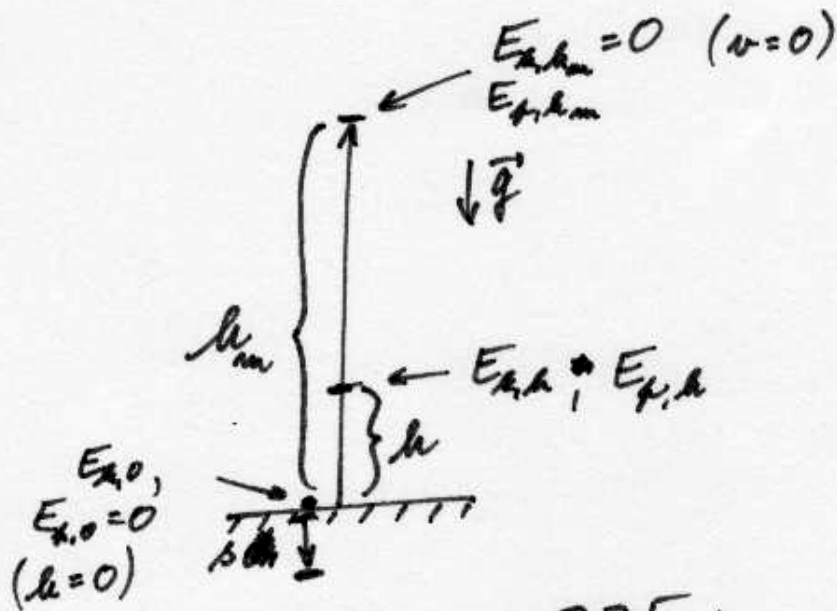 E_{k,h_m} = 0 (v=0)
E_{p,h_m}
g⃗
h_m
E_{k,h} , E_{p,h}
h
E_{k,0},
E_{p,0} = 0
(h=0)
s